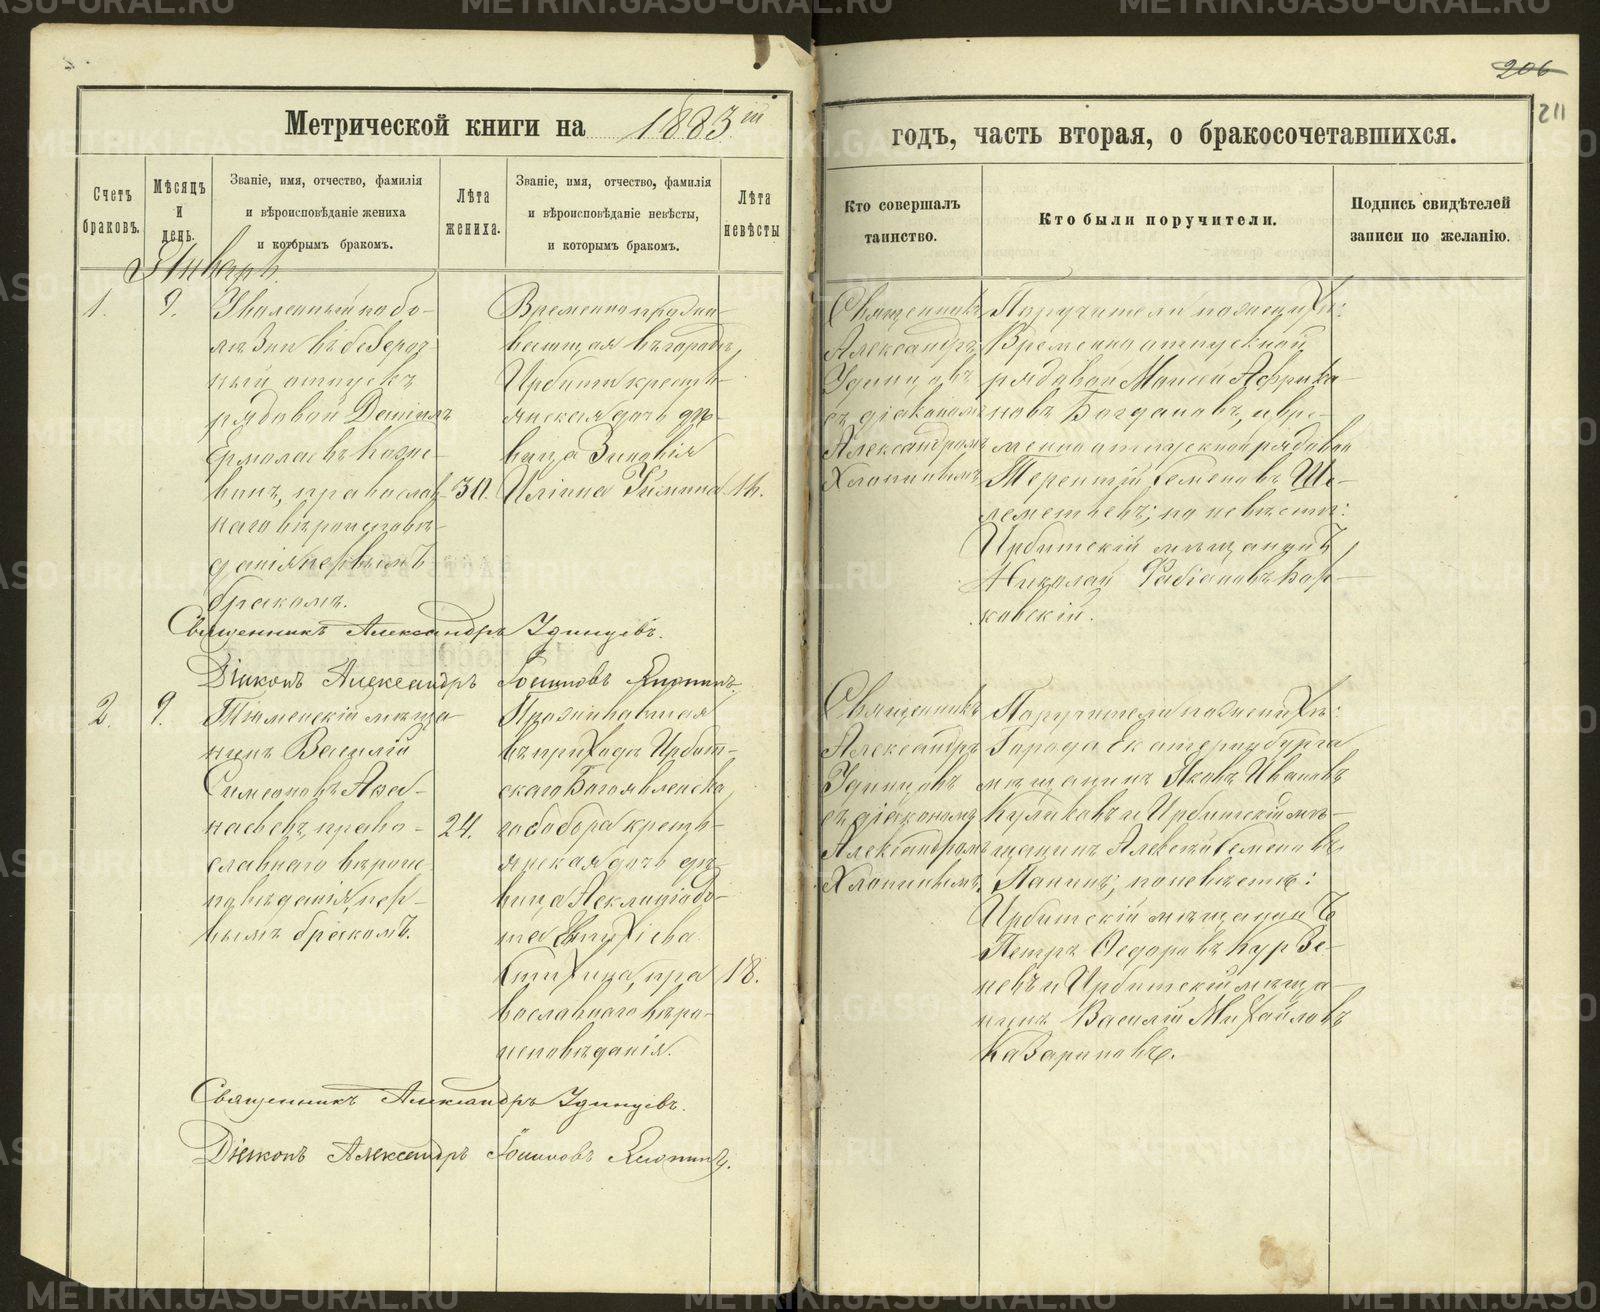 206
211
Метрической книги на 1883ій
годъ, часть вторая, о бракосочетавшихся.
Счетъ
браковъ.
Мѣсяцъ
и
день.
Званіе, имя, отчество, фамилія
и вѣроисповѣданіе жениха
и которымъ бракомъ.
Лѣта
жениха.
Званіе, имя, отчество, фамилія
и вѣроисповѣданіе невѣсты,
и которымъ бракомъ.
Лѣта
невѣсты
Кто совершалъ
таинство.
Кто были поручители.
Подпись свидѣтелей
записи по желанію.
Январь
1.
9.
Уволенный по бо-
лѣзни въ безсроч-
ный отпускъ
рядовой
Ермолаевъ
православ-
наго вѣроисповѣ-
данія первымъ
бракомъ.
30.
Временно прожи-
вающая въ городѣ
Ирбити кресть-
янская дочь дѣ-
вица Зиновія
16.
Священникъ
Александръ
Удинцевъ
съ діакономъ
Александромъ
Поручители по женихѣ:
Временно отпускной
рядовой Африка-
новъ Богдановъ, и вре-
менно отпускной рядовой
Терентій Семеновъ Ше-
леметьевъ; по невѣстѣ:
Ирбитскій мѣщанинъ
Николай Фабіановъ Бар-
ковскій.
Священникъ Александръ Удинцевъ.
Діаконъ Александръ
2.
9.
Тюменскій мѣща-
нинъ Василій
Симеоновъ Афа-
насьевъ, право-
славнаго вѣроис-
повѣданія, пер-
вымъ бракомъ.
24.
Проживавшая
въ приходѣ Ирбит-
скаго Богоявленска-
го Собора кресть-
янская дочь дѣ-
вица Асклипіадо-
та
пра-
вославнаго вѣро-
исповѣданія.
18.
Священникъ
Александръ
Удинцевъ
съ діакономъ
Александромъ
Поручители по женихѣ:
Города Екатеринбурга
мѣщанинъ Яковъ Ивановъ
Куликовъ и Ирбитскій мѣ-
щанинъ Алексѣй Семеновъ
Панинъ; по невѣстѣ:
Ирбитскій мѣщанинъ
Петръ Ѳедоровъ Курзе-
невъ и Ирбитскій мѣща-
нинъ Василій Михайловъ
Казариновъ.
Священникъ Александръ Удинцевъ.
Діаконъ Александръ
METRIKI.GASO-URAL.RU